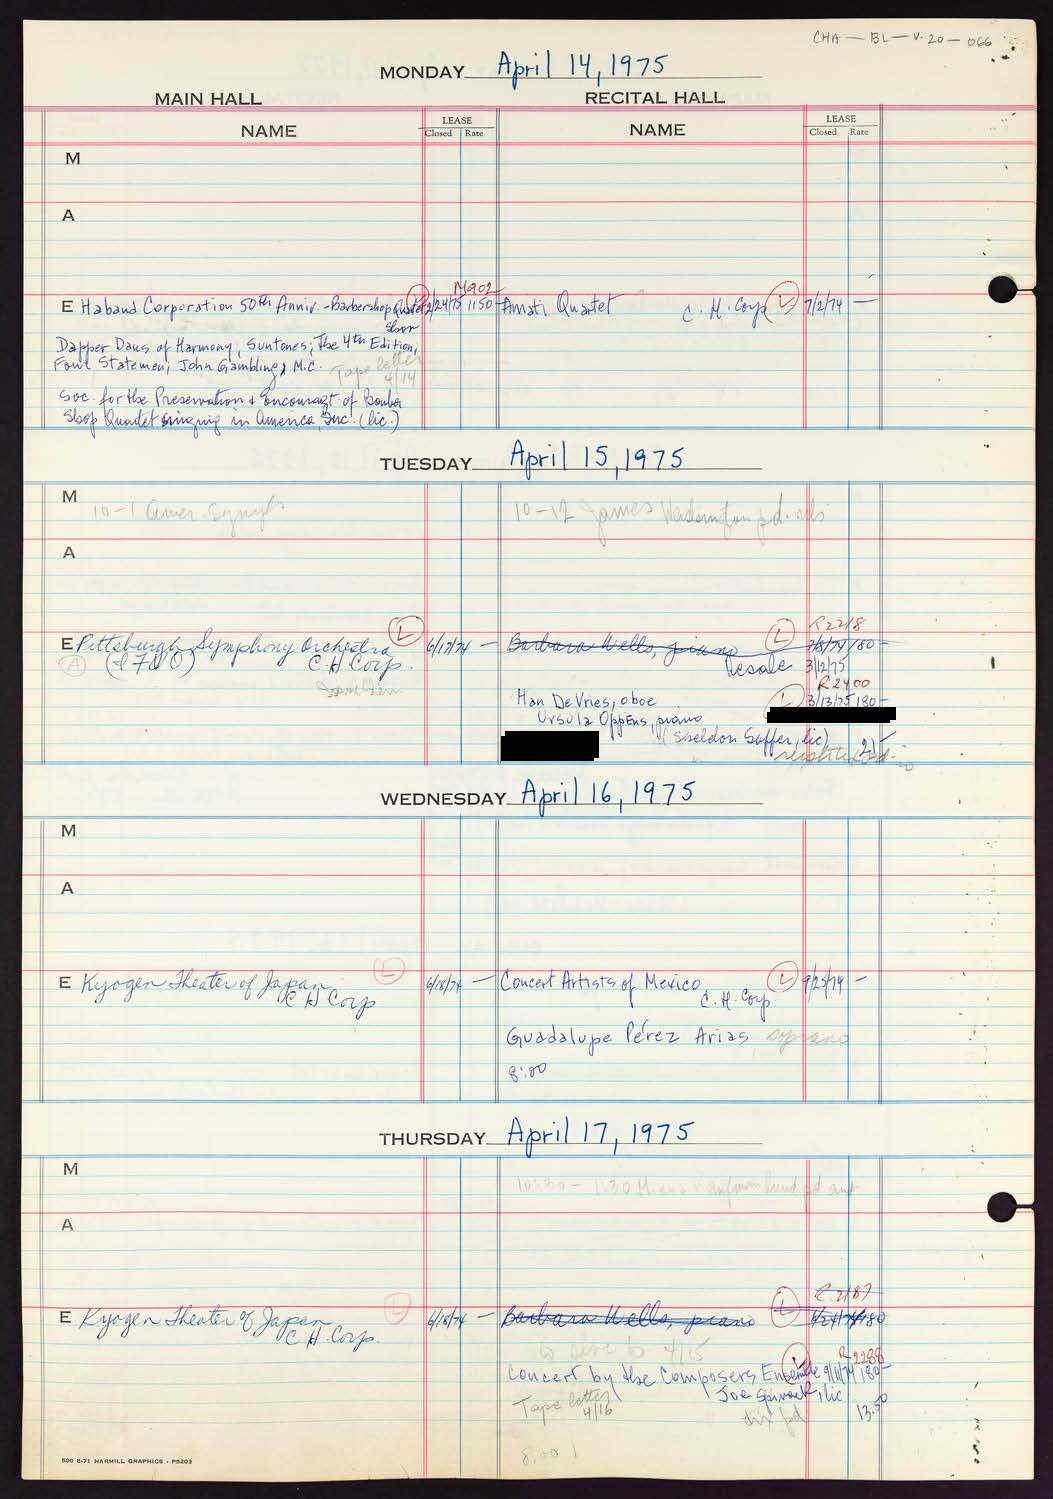 CHA — BL — V. 20 — 066
MONDAY April 14, 1975
MAIN HALL
RECITAL HALL
NAME
LEASE
Closed Rate
NAME
LEASE
Closed Rate
M
A
M902
E Haband Corporation 50th Anniv. - Barbershop Quartet 2/24/75 1150-
Amati Quartet C. H. Corp L 7/2/74 —
Dapper Dans of Harmony, Suntones; The 4th Edition,
Four Statesmen; John Gambling, M.C.
Tape letter
4/14
Soc. for the Preservation & Encouragt. of Barber
Shop Quartet Singing in America, Inc. (lic.)
TUESDAY April 15, 1975
M
10-1 Amer. Symph
10-12 James Washington pd.
A
R2218
E Pittsburgh Symphony Orchestra L 6/17/74 —
Barbara Wells, piano L 7/8/74 180-
A (IFVO) C.H. Corp.
Resale 3/12/75
R2400
Han De Vries, oboe L 3/13/75 180-
Ursula Oppens, piano
(Sheldon Soffer, lic) 21-
WEDNESDAY April 16, 1975
M
A
E Kyogen Theater of Japan L 6/18/74 —
C H Corp
Concert Artists of Mexico L 9/25/74 —
C. H. Corp
Guadalupe Pérez Arias soprano
8:00
THURSDAY April 17, 1975
M
10:30 - 1:30 pd
A
R 2187
E Kyogen Theater of Japan L 6/18/74 —
C H. Corp.
Barbara Wells, piano L 6/24/74 180
to 4/15
R2288
Concert by the Composers Ensemble L 9/11/74 180-
Joe Spivack, lic
Tape letter
4/16
tix pd 13.50
8:00
500 6-71 HARMILL GRAPHICS - P5203